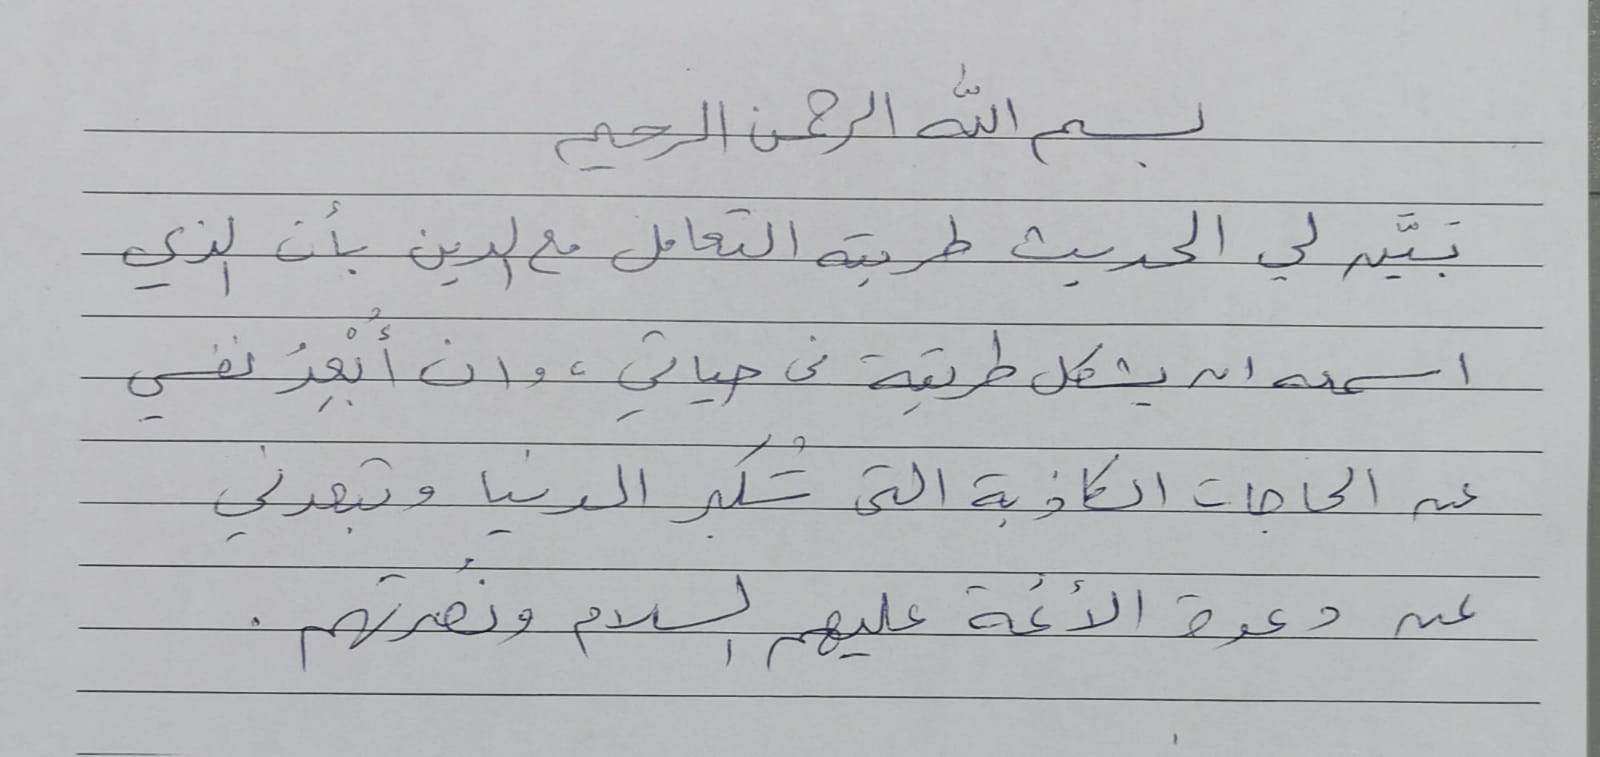 بسم الله الرحمن الرحيم
تبيَّن لي الحديث طريقة التعامل مع الدين بأن الذي
اسمعه ان يشكل طريقة في حياتي، وان أُبْعِدُ نفسي
عن الحاجات الكاذبة التي تُكبر الدنيا وتبعدني
عن دعوة الأئمة عليهم السلام ونُصرتهم.